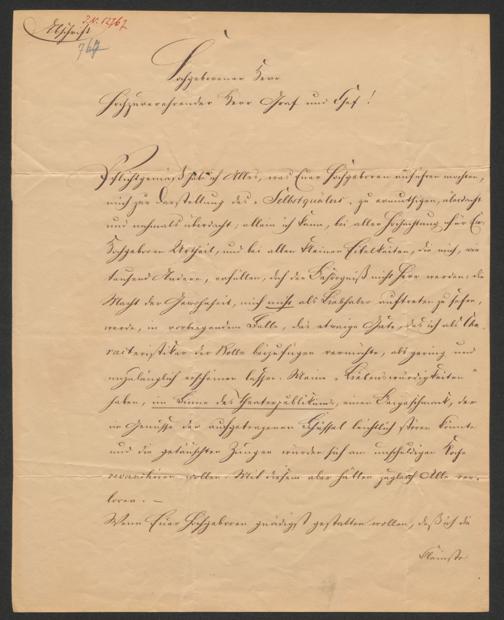 Abschrift
I.N. 12767
767
Hochgeborener Herr
Hochzuverehrender Herr Graf und Chef!
Pflichtgemäß habe ich Alles, was Euer Hochgeboren anführen mochten,
mich zur Darstellung des „Selbstquälers“ zu ermuthigen, überdacht
und nochmals überdacht; allein ich kann, bei aller Hochachtung für Eu.
Hochgeboren Urtheil, und bei allen kleinen Eitelkeiten, die mich, wie
tausend Andere, anfallen, doch der Besorgniß nicht Herr werden, die
Macht der Gewohnheit, mich nicht als Liebhaber auftreten zu sehen,
werde, in vorliegendem Falle, die etwaige Güte, das ich als Cha-
racteristiker der Rolle beizufügen vermöchte, als gering und
unzulänglich erscheinen lassen. Meine „Liebenswürdigkeiten“
haben, im Sinne des Theaterpublikums, einen Beigeschmack, der
im Genusse der aufgetragenen Schüssel leichtlich stören könnte
und die getäuschten Zungen würden sich am unschuldigen Koche
revanchiren wollen. Mit diesem aber hätten zugleich Alle ver-
loren. —
Wenn Euer Hochgeboren gnädigst gestatten wollen, daß ich die
kleinste